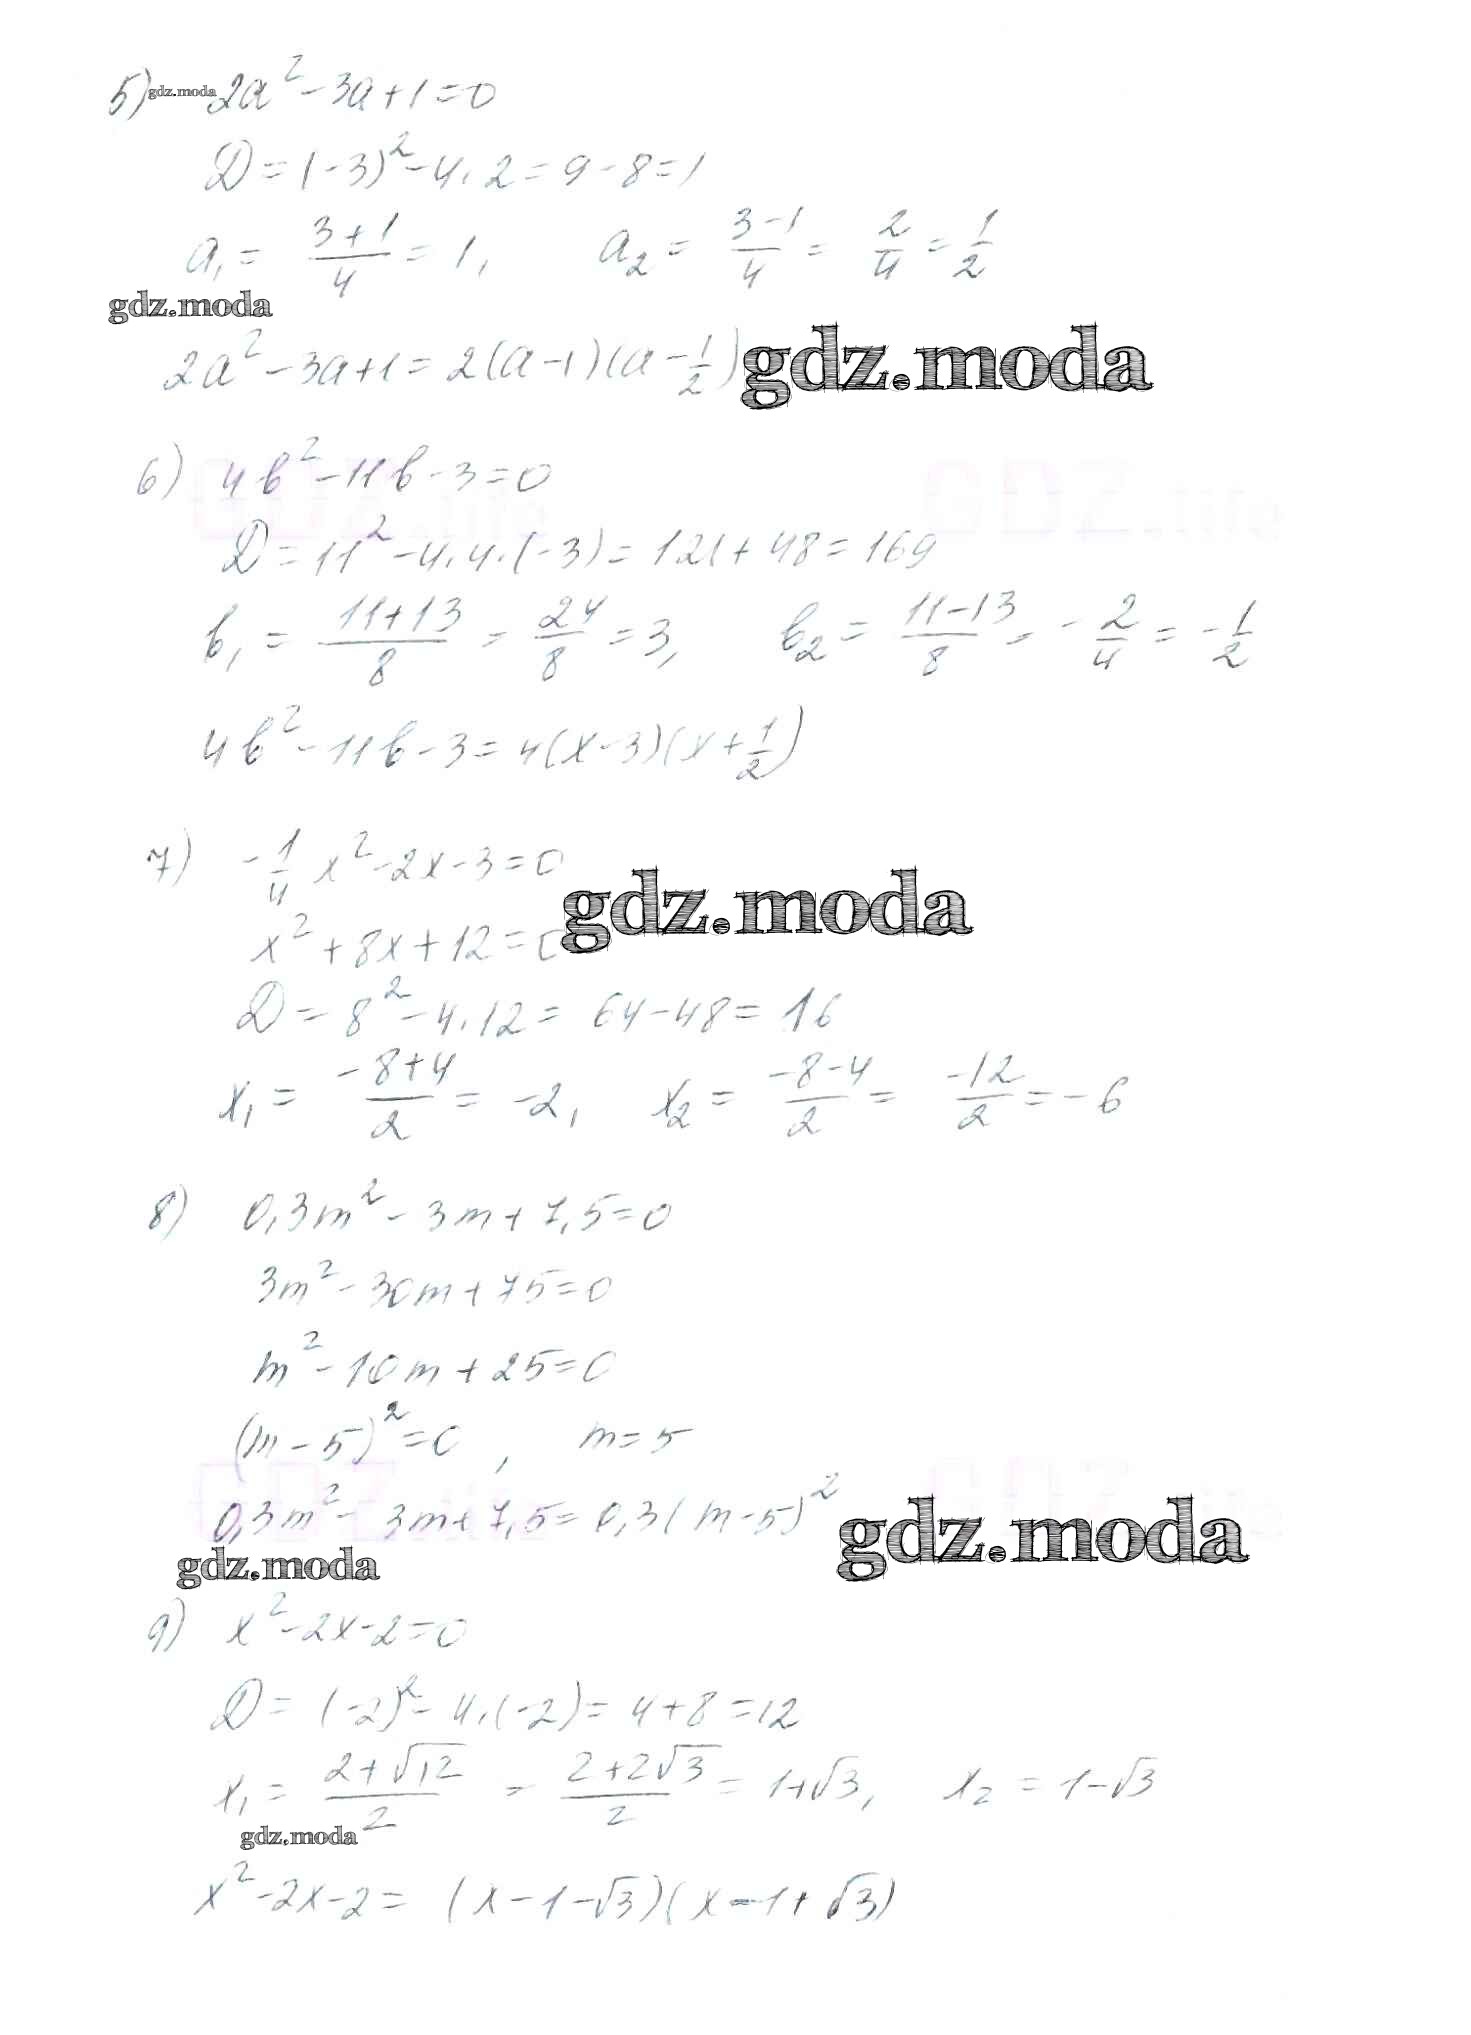 5) gdz.moda 2a² - 3a + 1 = 0
D = (-3)² - 4·2 = 9 - 8 = 1
a₁ = (3+1)/4 = 1, a₂ = (3-1)/4 = 2/4 = 1/2
gdz.moda
2a² - 3a + 1 = 2(a-1)(a - 1/2) gdz.moda
6) 4b² - 11b - 3 = 0
GDZ.life GDZ.life
D = 11² - 4·4·(-3) = 121 + 48 = 169
b₁ = (11+13)/8 = 24/8 = 3, b₂ = (11-13)/8 = -2/4 = -1/2
4b² - 11b - 3 = 4(x-3)(x + 1/2)
7) -1/4 x² - 2x - 3 = 0
gdz.moda
x² + 8x + 12 = 0
D = 8² - 4·12 = 64 - 48 = 16
x₁ = (-8+4)/2 = -2, x₂ = (-8-4)/2 = -12/2 = -6
8) 0,3m² - 3m + 7,5 = 0
3m² - 30m + 75 = 0
m² - 10m + 25 = 0
(m-5)² = 0, m = 5
0,3m² - 3m + 7,5 = 0,3(m-5)²
gdz.moda
gdz.moda
9) x² - 2x - 2 = 0
D = (-2)² - 4·(-2) = 4 + 8 = 12
x₁ = (2+√12)/2 = (2+2√3)/2 = 1+√3, x₂ = 1-√3
gdz.moda
x² - 2x - 2 = (x - 1 - √3)(x - 1 + √3)